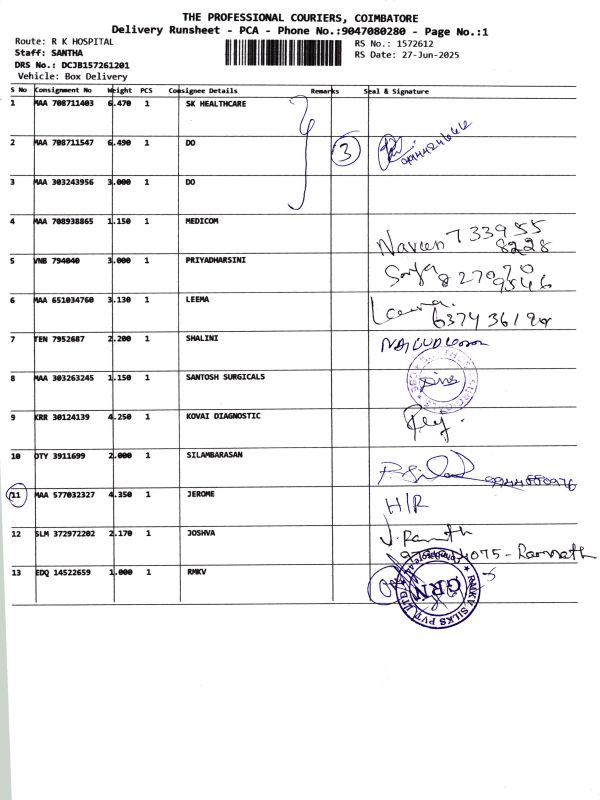 THE PROFESSIONAL COURIERS, COIMBATORE
Delivery Runsheet - PCA - Phone No.:9047080280 - Page No.:1
Route: R K HOSPITAL
RS No.: 1572612
Staff: SANTHA
RS Date: 27-Jun-2025
DRS No.: DCJB157261201
Vehicle: Box Delivery
S No Consignment No Weight PCS Consignee Details Remarks Seal & Signature
1 MAA 708711403 6.470 1 SK HEALTHCARE
2 MAA 708711547 6.490 1 DO 3
3 MAA 303243956 3.000 1 DO
4 MAA 708938865 1.150 1 MEDICOM Naveen 733955
8228
5 VNB 794040 3.000 1 PRIYADHARSINI
6 MAA 651034760 3.130 1 LEEMA Leema.
7 TEN 7952687 2.200 1 SHALINI
8 MAA 303263245 1.150 1 SANTOSH SURGICALS
9 KRR 30124139 4.250 1 KOVAI DIAGNOSTIC
10 OTY 3911699 2.000 1 SILAMBARASAN
11 MAA 577032327 4.350 1 JEROME H/R
12 SLM 372972202 2.170 1 JOSHVA
4075 - Ramnath
13 EDQ 14522659 1.000 1 RMKV
RMKV SILKS PVT. LTD
GRN